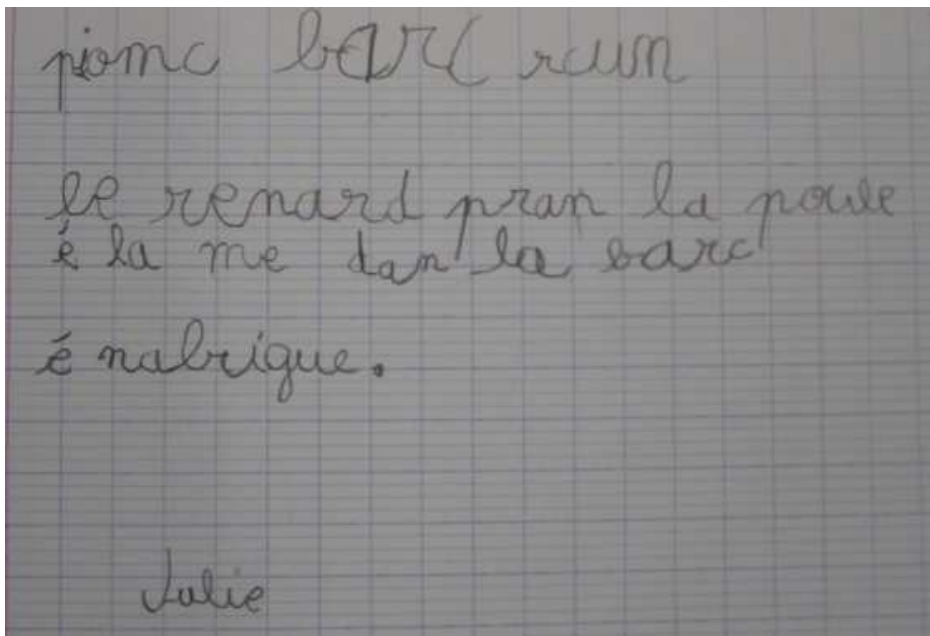 barc
le renard pran la poule
é la me dan la barc
é nabrigue.
Julie